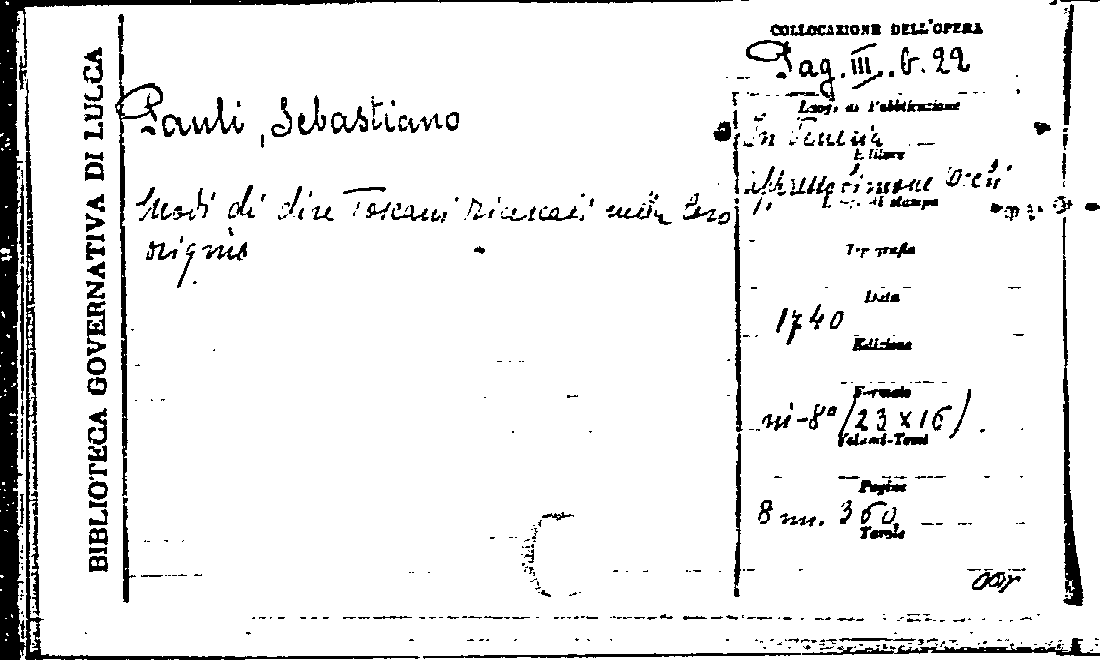 BIBLIOTECA GOVERNATIVA DI LUCCA
Pauli, Sebastiano
Modi di dire Toscani ricercati nella loro
origine
COLLOCAZIONE DELL'OPERA
Pag. III. b. 22
Luogo di Pubblicazione
In Venezia
Editore
appresso Simone Occhi
Luogo di stampa
Tipografia
Data
1740
Edizione
Formato
in-8° (23 x 16).
Volumi-Tomi
Pagine
8 nn. 360
Tavole